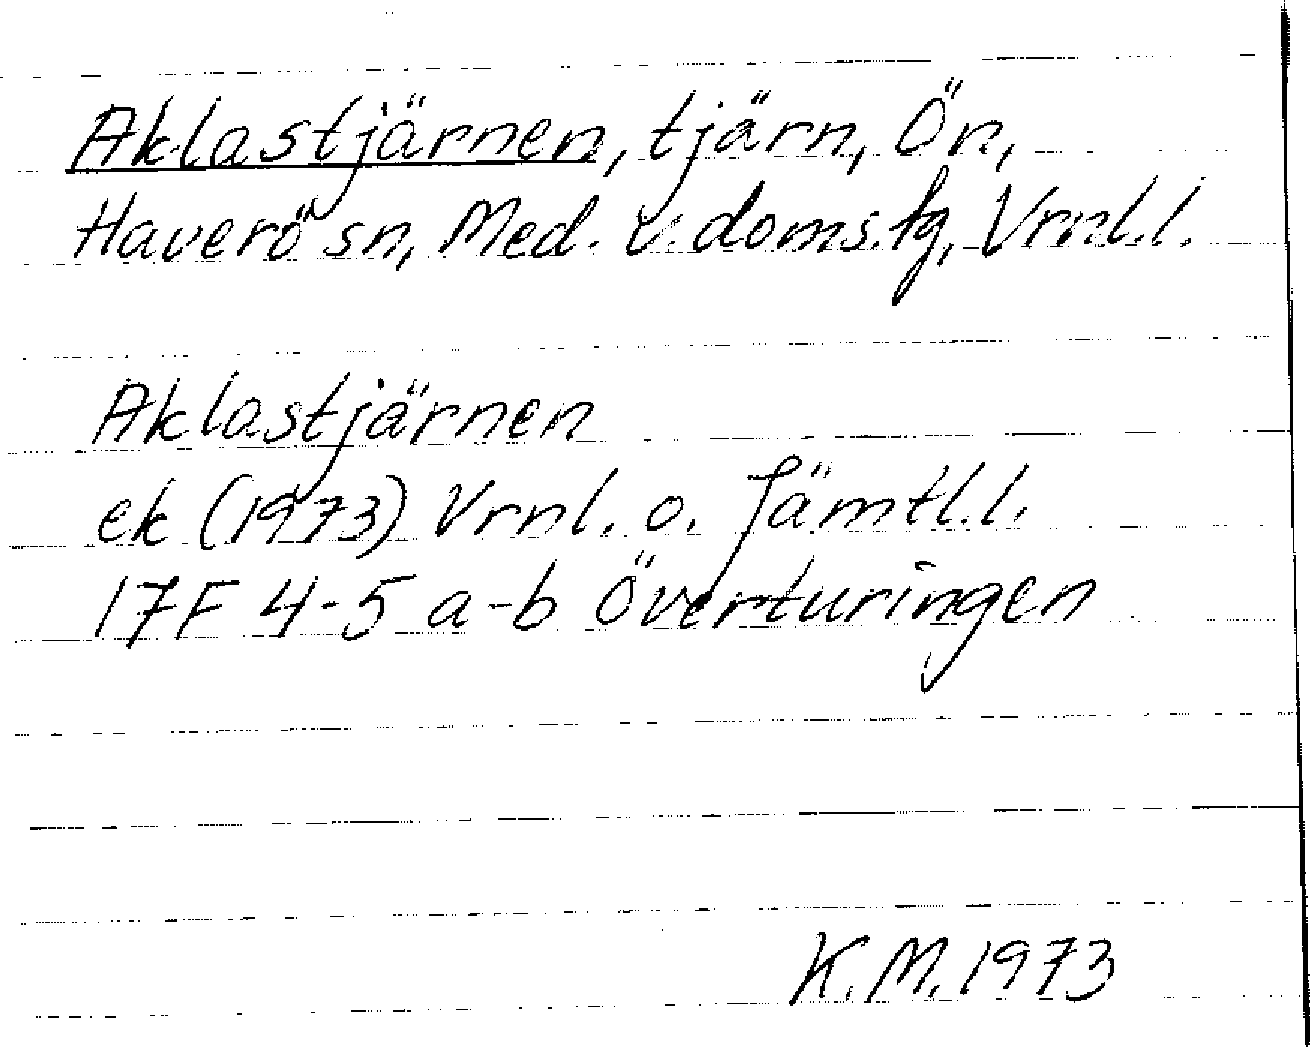 Aklastjärnen, tjärn, Ön,
Haverö sn, Med. v. doms.hg, Vrnl.l.
Aklastjärnen
ek (1973) Vrnl. o. Jämtl.l.
17F 4-5 a-b Överturingen
K.M. 1973